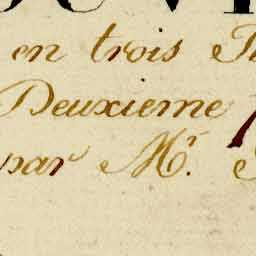 en trois
Deuxieme
par Mr.